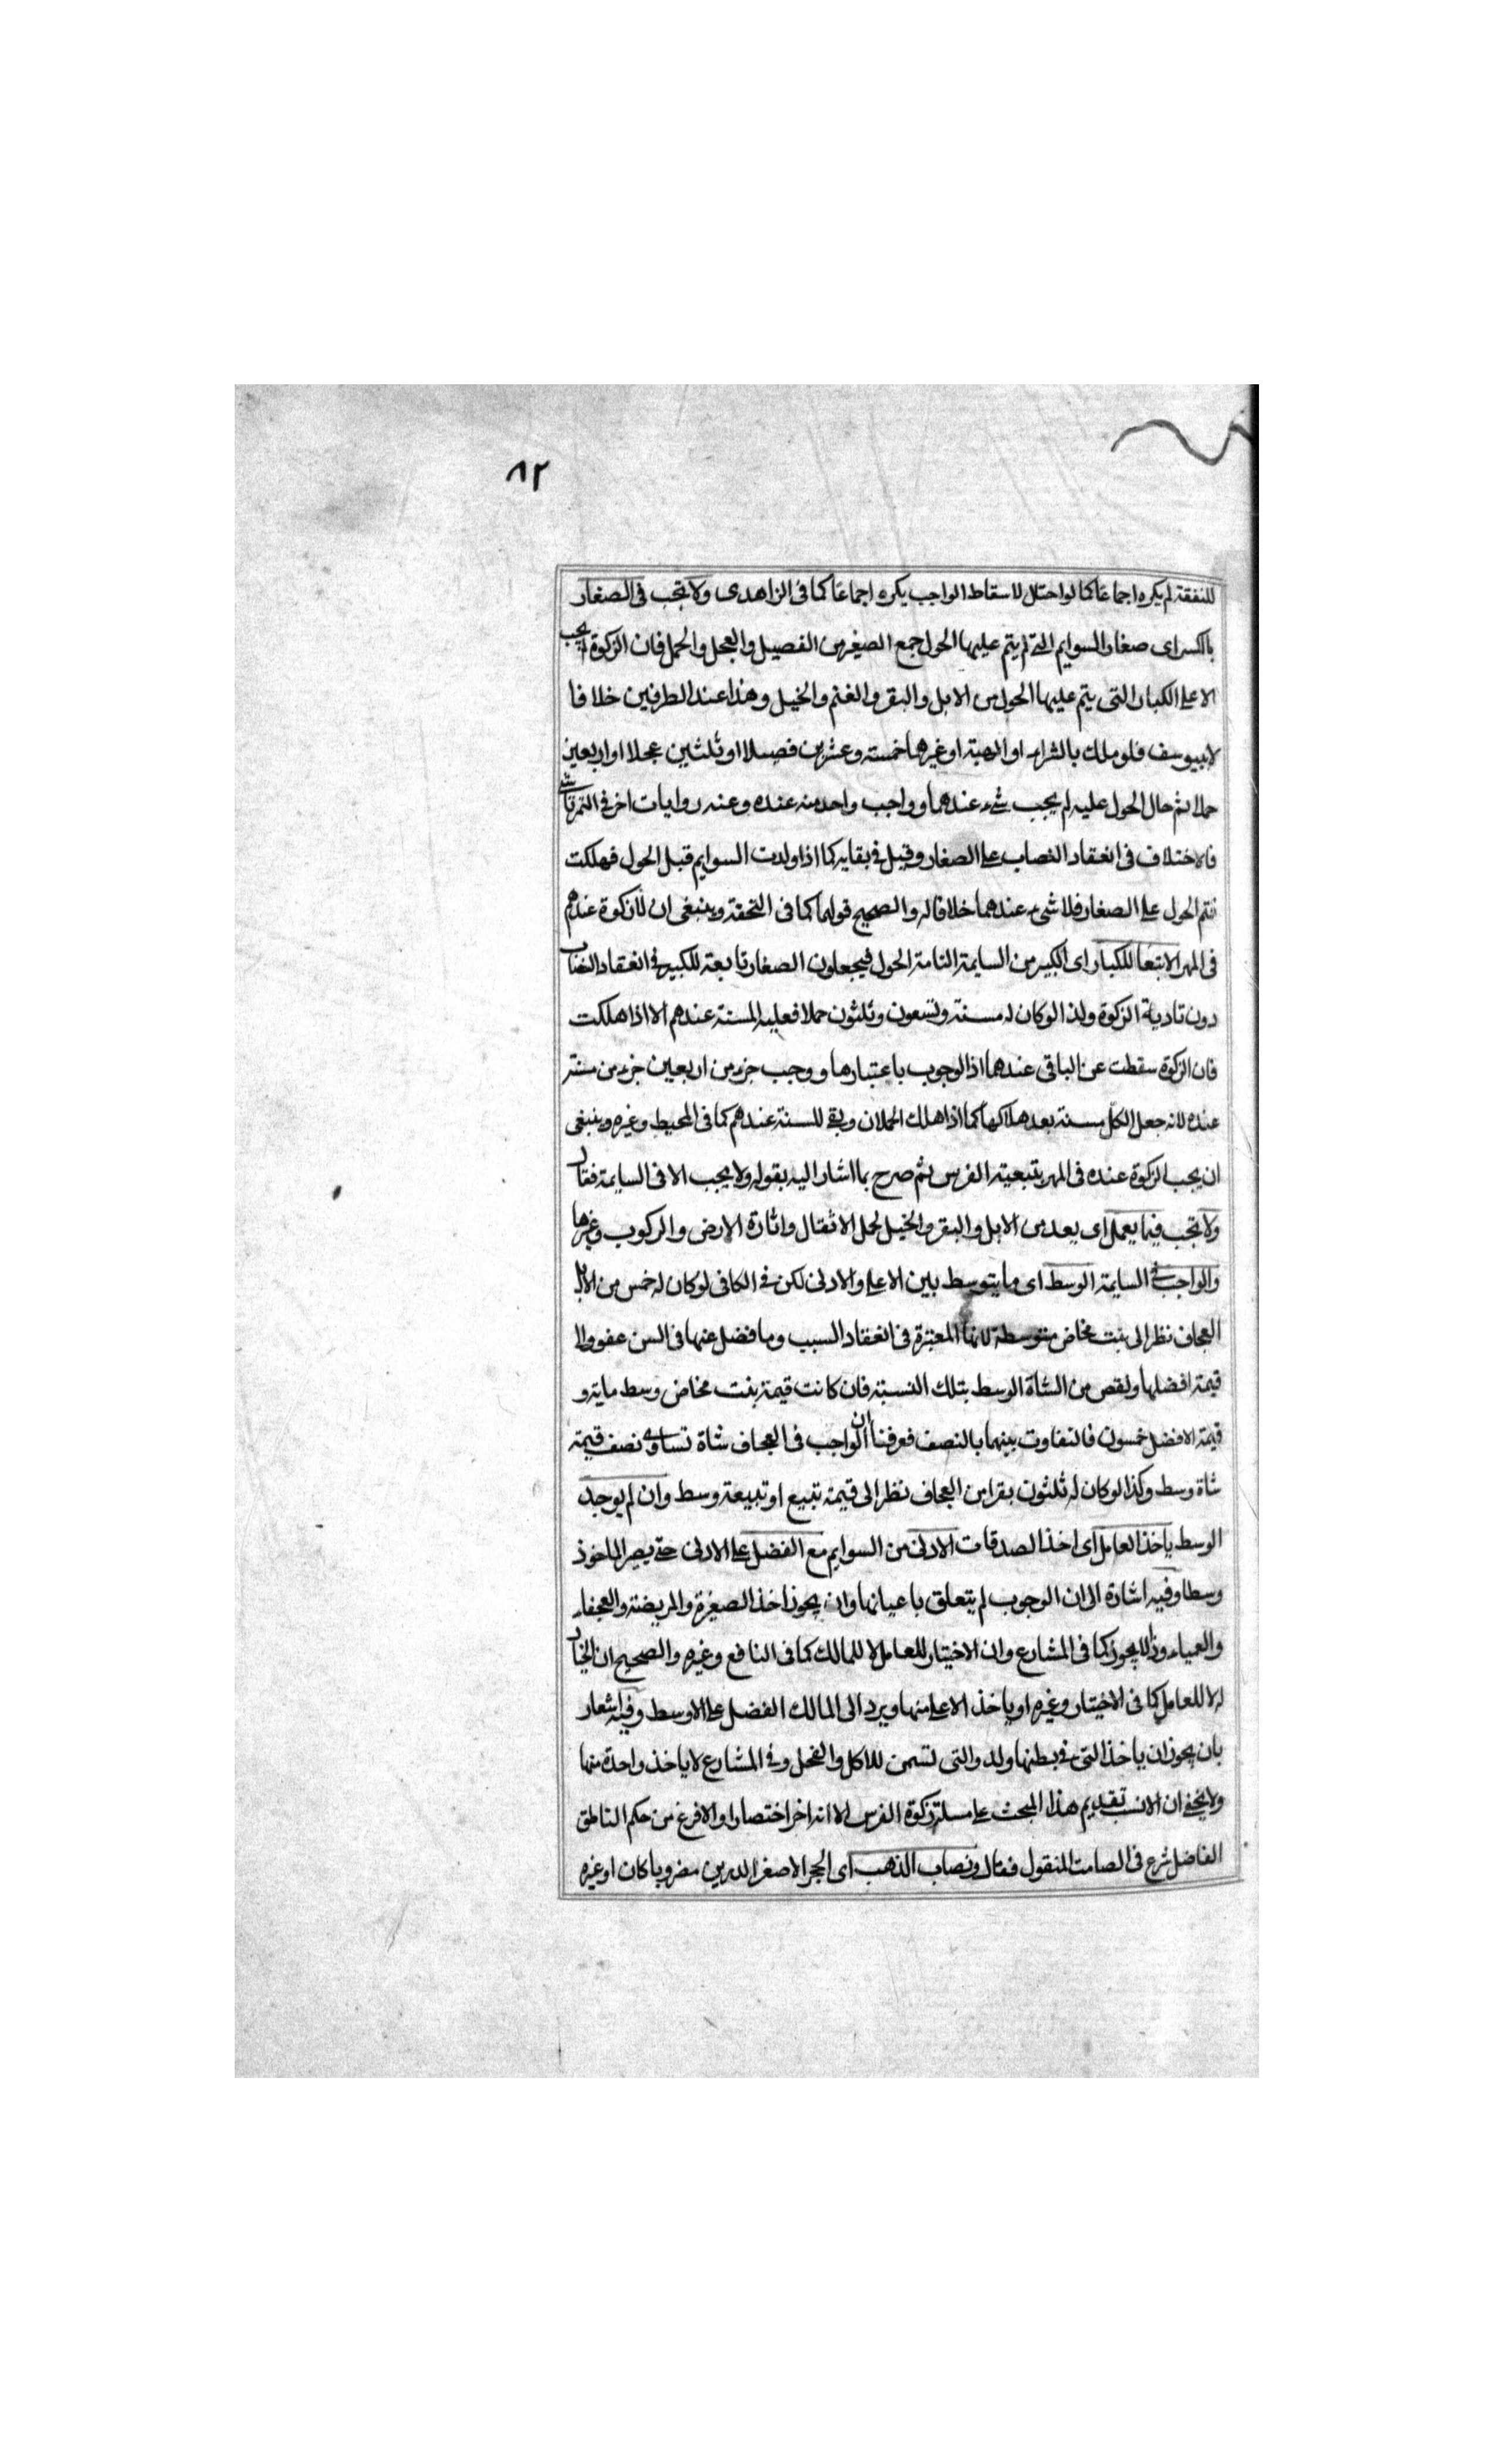 ٨٢
للنفقة لم يكره اجماعا كما لو احتال لاسقاط الواجب يكره اجماعا كما في الزاهدى ولا تجب فى الصغار
بالكسر اى صغار السوايم التى لم يتم عليها الحول جمع الصغير من الفصيل والعجل والحمل فان الزكوة لا يجب
الا على الكبار التى يتم عليها الحول من الابل والبقر والغنم والخيل وهذا عند الطرفين خلافا
لابييوسف فلو ملك بالشراء او الهبة او غيرهما خمسة وعشرين فصيلا او ثلثين عجلا او اربعين
حملا ثم حال الحول عليه لم يجب شىء عندهما وواجب واحد منه عنده وعنه روايات اخر فى التمرتاشى
فالاختلاف فى انعقاد النصاب على الصغار وقيل فى بقايه كما اذا ولدت السوايم قبل الحول فهلكت
فتم الحول على الصغار فلا شىء عندهما خلافا له والصحيح قولهما كما فى التحفة وينبغى ان لا زكوة عندهم
فى المهر الا تبعا للكبار اى الكبير من السايمة التامة الحول فيجعلون الصغار تابعة للكبير فى انعقاد النصاب
دون تادية الزكوة ولذا لو كان له مسنة وتسعون وثلثون حملا فعليه المسنة عندهم الا اذا هلكت
فان الزكوة سقطت عن الباقى عندهما اذ الوجوب باعتبارها ووجب جزء من اربعين جزء من مسنة
عنده لانه جعل الكل مسنة بعد هلاكها كما اذا هلك الحملان وبقى للسنة عندهم كما فى المحيط وغيره وينبغى
ان يجب الزكوة عنده فى المهر بتبعية الفرس ثم صرح بما اشار اليه بقوله ولا يجب الا فى السايمة فقال
ولا تجب فيما يعمل اى يعد من الابل والبقر والخيل لحمل الاثقال واثارة الارض والركوب وغيرها
والواجب فى السايمة الوسط اى ما يتوسط بين الاعلى والادنى لكن فى الكافى لو كان له خمس من الابل
العجاف نظر الى بنت مخاض متوسطة لانها المعتبرة فى انعقاد السبب وما فضل عنها فى السن عفو والى
قيمة افضلها ونقص من الشاة الوسط بتلك النسبة فان كانت قيمة بنت مخاض وسط ماية و
قيمة الافضل خمسون فالتفاوت بينهما بالنصف فعرفنا ان الواجب فى العجاف شاة تساوى نصف قيمة
شاة وسط وكذا لو كان له ثلثون بقرا من العجاف نظر الى قيمة تبيع او تبيعة وسط وان لم يوجد
الوسط ياخذ العامل اى اخذ الصدقات الادنى من السوايم مع الفضل على الادنى حتى يصير الماخوذ
وسطا وفيه اشارة الى ان الوجوب لم يتعلق باعيانها وان يجوز اخذ الصغيرة والمريضة والعجفاء
والعمياء وذا لا يجوز كما فى المشارع وان الاختيار للعامل لا للمالك كما فى النافع وغيره والصحيح ان الخيار
له لا للعامل كما فى الاختيار وغيره او ياخذ الاعلى منها ويرد الى المالك الفضل على الاوسط وفيه اشعار
بان يجوز ان ياخذ التى فى بطنها ولد والتى تسمن للاكل والفحل وفى المشارع لا ياخذ واحدة منها
ولا يخفى ان الانسب تقديم هذا المبحث على مسئلة زكوة الفرس الا انه اخر اختصارا والا فرغ من حكم الناطق
الفاضل شرع فى الصامت المنقول فقال ونصاب الذهب اى الحجر الاصفر الدرين مضروبا كان او غيره